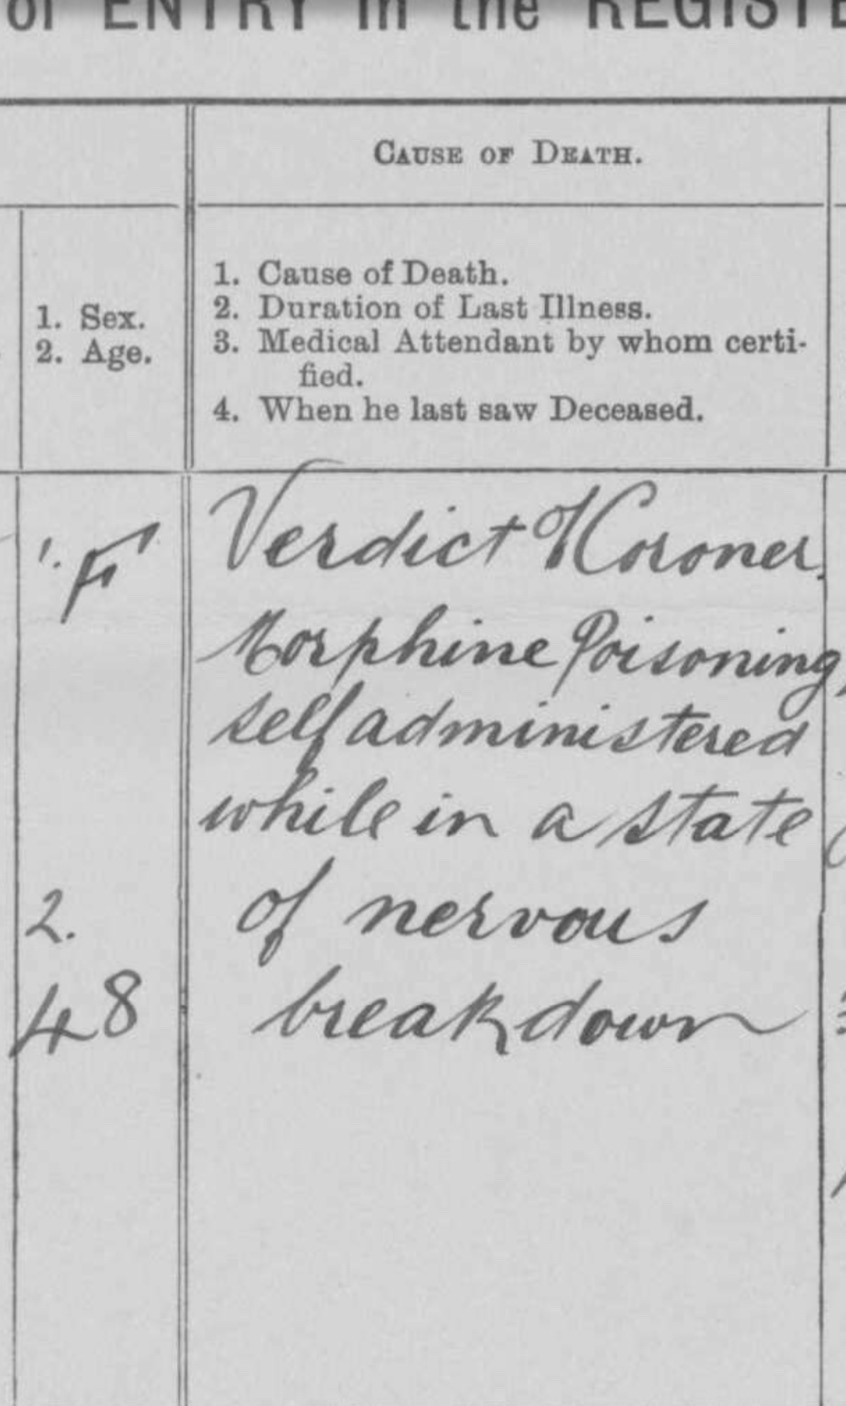 of ENTRY in the REGISTE
CAUSE OF DEATH.
1. Sex.
2. Age.
1. Cause of Death.
2. Duration of Last Illness.
3. Medical Attendant by whom certi-
fied.
4. When he last saw Deceased.
1. F
Verdict of Coroner.
Morphine Poisoning,
self administered
while in a state
2.
of nervous
48
breakdown